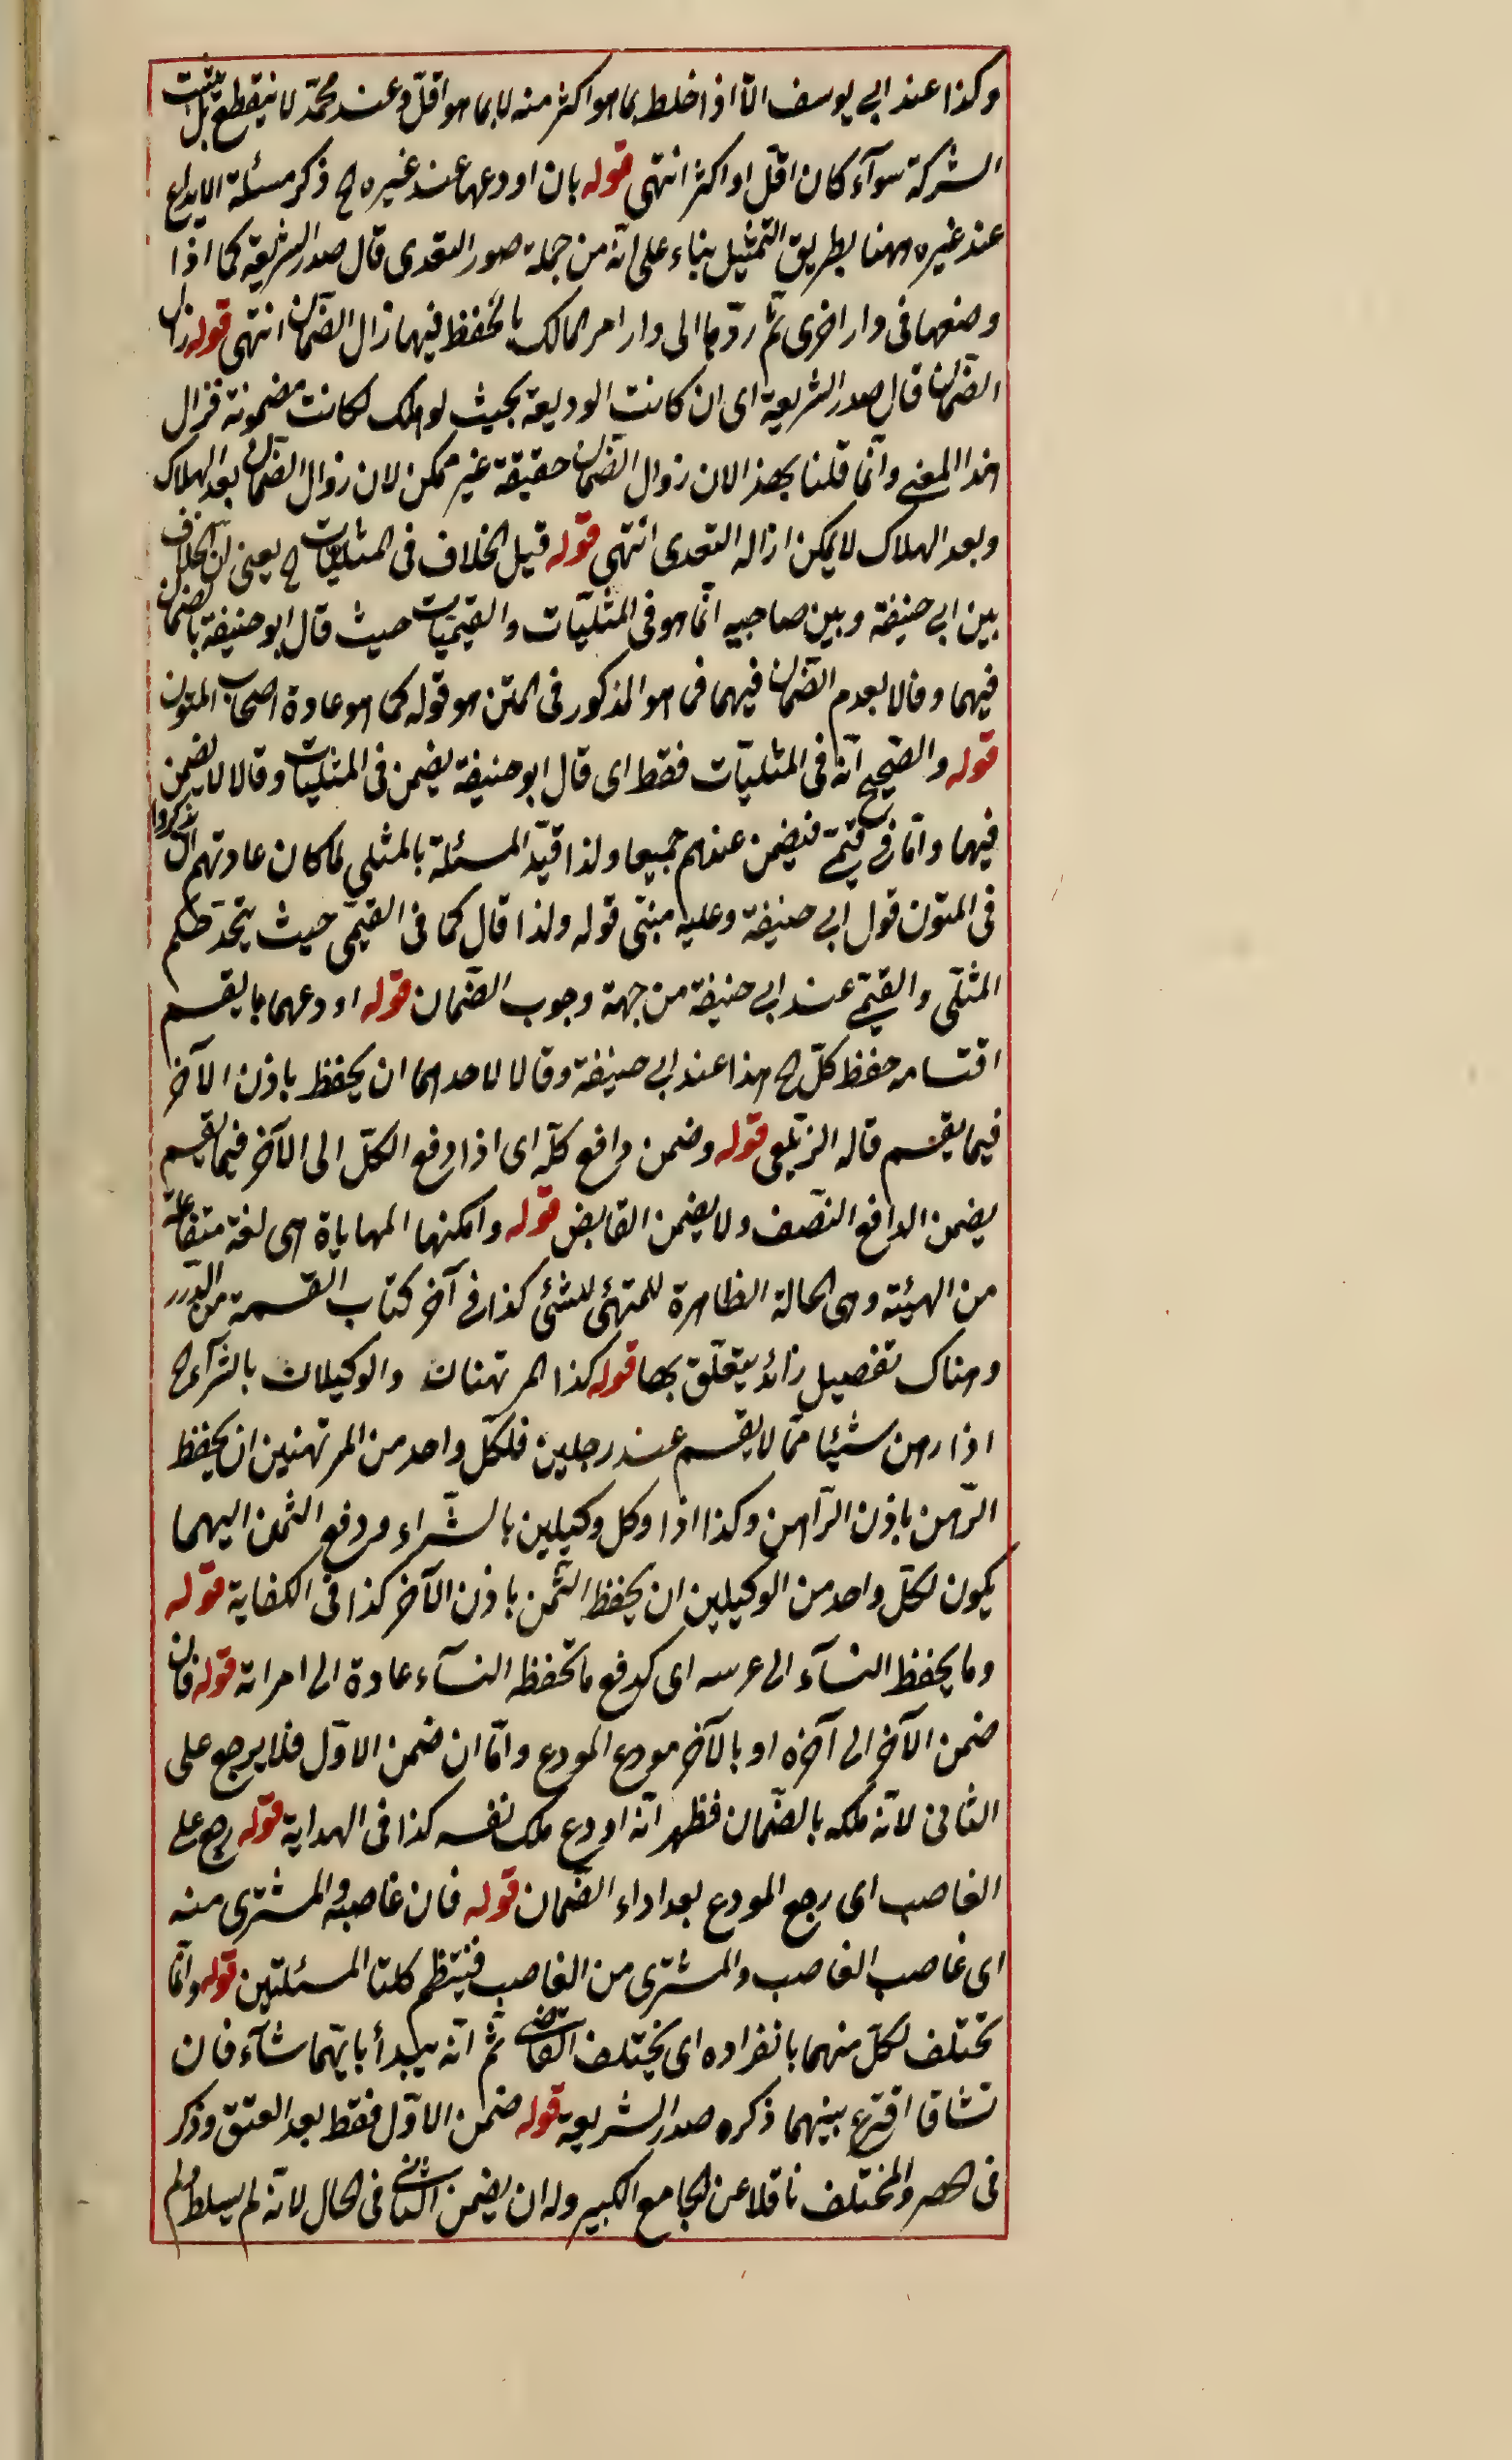 وكذا عند ابي يوسف الّا اذا خلط بما هو اكثر منه لا بما هو اقلّ وعند محمّد لا ينقطع بل تثبت
الشركة سوآء كان اقلّ او اكثر انتهى قوله بان اودعها عند غيره ح ذكر مسئلة الايداع
عند غيره ههنا بطريق التمثيل بناء على انّه من جملة صور التعدى قال صدر الشريعة كما اذا
وضعها فى دار اخرى ثمّ ردّها الى دار امر المالك بالحفظ فيها زال الضّمان انتهى قوله زال
الضّمان قال صدر الشريعة اى ان كانت الوديعة بحيث لو هلك لكانت مضمونة فزال
هذا المعنى وانّما قلنا بهذا لان زوال الضّمان حقيقة غير ممكن لان زوال الضّمان بعد الهلاك
وبعد الهلاك لا يمكن ازالة التعدى انتهى قوله قيل الخلاف فى المثليّات ح يعنى ان الخلاف
بين ابي حنيفة وبين صاحبيه انّما هو فى المثليّات والقيميّات حيث قال ابو حنيفة بالضمان
فيهما وقالا بعدم الضّمان فيهما فما هو المذكور فى المتن هو قوله كما هو عادة اصحاب المتون
قوله والصّحيح انّه فى المثليّات فقط اى قال ابو حنيفة يضمن فى المثليّات وقالا لا يضمن
فيها وامّا فى قيمىّ فيضمن عندهم جميعا ولذا قيّد المسئلة بالمثلي لما كان عادتهم ان يذكروا
فى المتون قول ابي حنيفة وعليه مبنى قوله ولذا قال كما فى القيمّى حيث يتحدّ حكم
المثلّى والقيمّى عند ابي حنيفة من جهة وجوب الضّمان قوله اودعهما ما يقسم
اقتسامه حفظ كلّ ح هذا عند ابي حنيفة وقالا لاحدهما ان يحفظ باذن الآخر
فيما يقسم قاله الزيلعى قوله وضمن دافع كلّه اى اذا دفع الكلّ الى الآخر فيما يقسم
يضمن الدافع النّصف ولا يضمن القابض قوله وامكنها المهاياة هى لغة متفاعلة
من الهيئة وهى الحالة الظاهرة للمتهئ للشئ كذا فى آخر كتاب القسمة من الدرر
وهناك تفصيل زائد يتعلّق بها قوله كذا المرتهنان والوكيلان بالشرآء ح
اذا رهن شيئا ممّا لا يقسم عند رجلين فلكلّ واحد من المرتهنين ان يحفظ
الرّهن باذن الرّاهن وكذا اذا وكل وكيلين بالشّراء ودفع الثمن اليهما
يكون لكلّ واحد من الوكيلين ان يحفظ الثمن باذن الآخر كذا فى الكفاية قوله
وما يحفظ النسآء الى عرسه اى كدفع ما تحفظه النسآء عادة الى امراته قوله فان
ضمن الآخر الى آخره او بالآخر مودع المودع وامّا ان ضمن الاوّل فلا يرجع على
الثانى لانّه ملكه بالضّمان فظهر انّه اودع ملك نفسه كذا فى الهداية قوله رجع على
الغاصب اى رجع المودع بعد اداء الضّمان قوله فان غاصبه والمشترى منه
اى غاصب الغاصب والمشترى من الغاصب فينتظم كلتا المسئلتين قوله وانّما
تختلف لكلّ منهما بانفراده اى يختلف القاضى ثمّ انّه يبدأ بايّهما شآء فان
تشاقا اقترع بينهما ذكره صدر الشريعة قوله ضمن الاوّل فقط بعد العتق وذكر
فى الحصر والمختلف ناقلا عن الجامع الكبير وله ان يضمن الثانى فى الحال لانّه لم يسلط